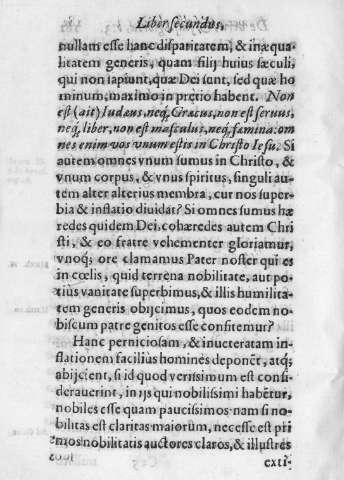 Liber secundus,
nullam esse hanc disparitatem, & inæqua-
litatem generis, quam filij huius sæculi,
qui non sapiunt, quæ Dei sunt, sed quæ ho
minum, maximo in pretio habent. Non
est (ait) Iudæus, neq; Græcus, non est seruus,
neq; liber, non est masculus, neq; fæmina: om
nes enim vos vnum estis in Christo Iesu. Si
autem omnes vnum sumus in Christo, &
vnum corpus, & vnus spiritus, singuli au-
tem alter alterius membra, cur nos super-
bia & inflatio diuidat? Si omnes sumus hæ
redes quidem Dei. cohæredes autem Chri
sti, & eo fratre vehementer gloriamur,
vnoq; ore clamamus Pater noster qui es
in cœlis, quid terrena nobilitate, aut po-
tius vanitate superbimus, & illis humilita-
tem generis obijcimus, quos eodem no-
biscum patre genitos esse confitemur?
Hanc perniciosam, & inueteratam in-
flationem facilius homines deponẽt, atq;
abijcient, si id quod verissimum est consi-
derauerint, in ijs qui nobilissimi habẽtur,
nobiles esse quam paucissimos. nam si no-
bilitas est claritas maiorum, necesse est pri
mos nobilitatis auctores claros, & illustres
exti-